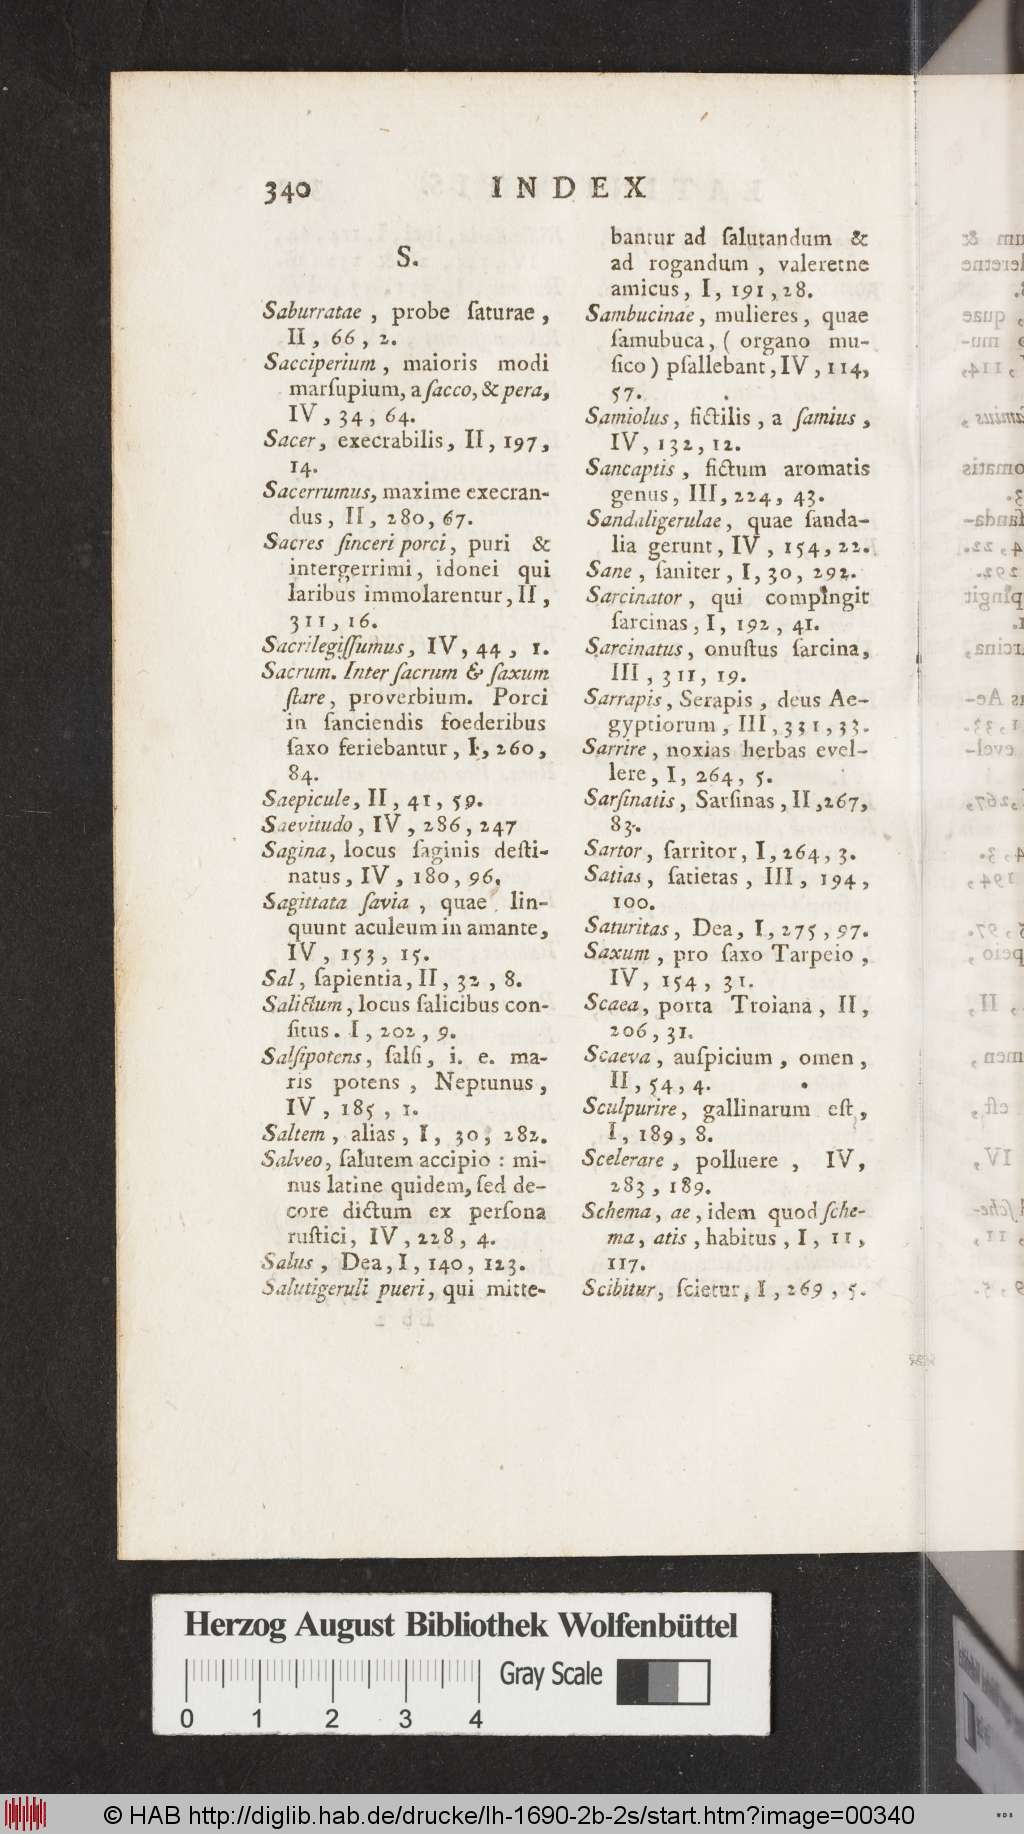 340 INDEX
S.
Saburratae , probe ſaturae ,
II , 66 , 2.
Sacciperium , maioris modi
marſupium, a ſacco, & pera,
IV , 34 , 64.
Sacer, execrabilis, II, 197,
14.
Sacerrumus, maxime execran-
dus, II, 280, 67.
Sacres ſinceri porci, puri &
intergerrimi, idonei qui
laribus immolarentur, II,
311, 16.
Sacrilegiſſumus, IV, 44, 1.
Sacrum. Inter ſacrum & ſaxum
ſtare, proverbium. Porci
in ſanciendis foederibus
ſaxo feriebantur, I, 260,
84.
Saepicule, II, 41, 59.
Saevitudo, IV, 286, 247
Sagina, locus ſaginis deſti-
natus, IV, 180, 96.
Sagittata ſavia , quae lin-
quunt aculeum in amante,
IV, 153, 15.
Sal, ſapientia, II, 32, 8.
Salictum, locus ſalicibus con-
ſitus. I, 202, 9.
Salſipotens, ſalſi, i. e. ma-
ris potens , Neptunus,
IV, 185, 1.
Saltem , alias, I, 30, 282.
Salveo, ſalutem accipio : mi-
nus latine quidem, ſed de-
core dictum ex perſona
ruſtici, IV, 228, 4.
Salus , Dea, I, 140, 123.
Salutigeruli pueri, qui mitte-
bantur ad ſalutandum &
ad rogandum , valeretne
amicus, I, 191, 28.
Sambucinae, mulieres, quae
ſamubuca, ( organo mu-
ſico ) pſallebant, IV, 114,
57.
Samiolus, fictilis, a ſamius,
IV, 132, 12.
Sancaptis , fictum aromatis
genus, III, 224, 43.
Sandaligerulae, quae ſanda-
lia gerunt, IV, 154, 22.
Sane , ſaniter, I, 30, 292.
Sarcinator, qui compingit
ſarcinas, I, 192, 41.
Sarcinatus, onuſtus ſarcina,
III, 311, 19.
Sarrapis, Serapis , deus Ae-
gyptiorum, III, 331, 33.
Sarrire, noxias herbas evel-
lere, I, 264, 5.
Sarſinatis, Sarſinas, II, 267,
83.
Sartor, ſarritor, I, 264, 3.
Satias, ſatietas, III, 194,
100.
Saturitas, Dea, I, 275, 97.
Saxum , pro ſaxo Tarpeio,
IV, 154, 31.
Scaea, porta Troiana, II,
206, 31.
Scaeva, auſpicium, omen,
II, 54, 4.
Sculpurire, gallinarum eſt,
I, 189, 8.
Scelerare , polluere , IV,
283, 189.
Schema, ae, idem quod ſche-
ma, atis, habitus, I, 11,
117.
Scibitur, ſcietur, I, 269, 5.
Herzog August Bibliothek Wolfenbüttel
Gray Scale
0 1 2 3 4
© HAB http://diglib.hab.de/drucke/lh-1690-2b-2s/start.htm?image=00340